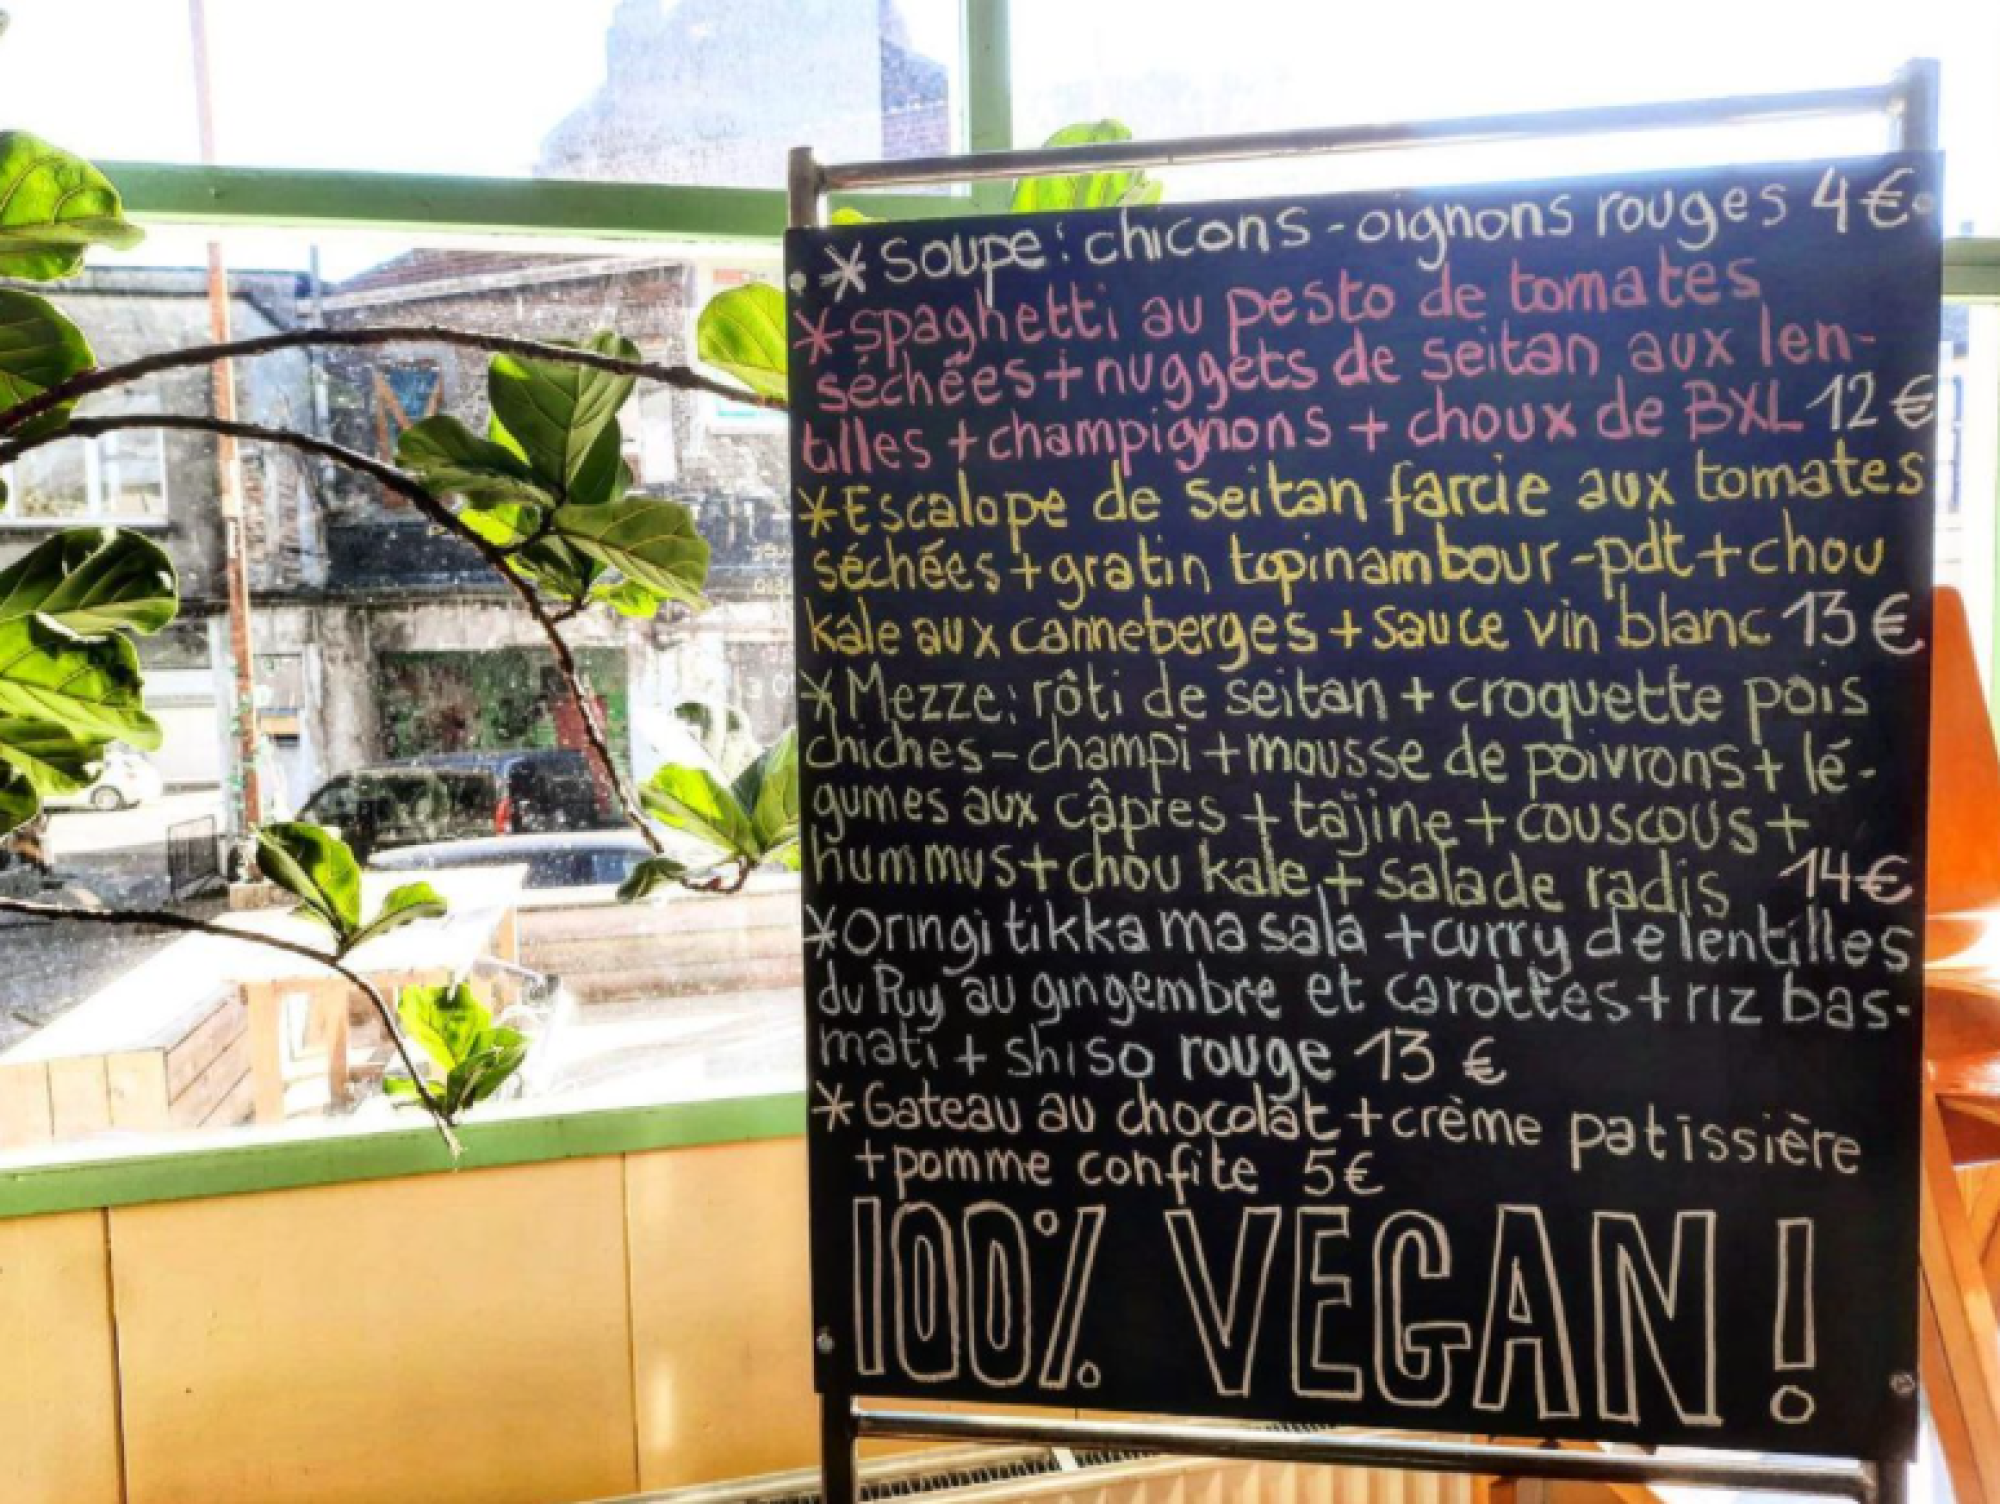 * Soupe: chicons-oignons rouges 4€
* Spaghetti au pesto de tomates
séchées + nuggets de seitan aux len-
tilles + champignons + choux de BXL 12€
* Escalope de seitan farcie aux tomates
séchées + gratin topinambour-pdt + chou
kale aux canneberges + sauce vin blanc 13€
* Mezze: rôti de seitan + croquette pois
chiches-champi + mousse de poivrons + lé-
gumes aux câpres + tajine + couscous +
hummus + chou kale + salade radis 14€
* Oringi tikka masala + curry de lentilles
du Puy au gingembre et carottes + riz bas-
mati + shiso rouge 13 €
* Gateau au chocolat + crème patissière
+ pomme confite 5€
100% VEGAN !